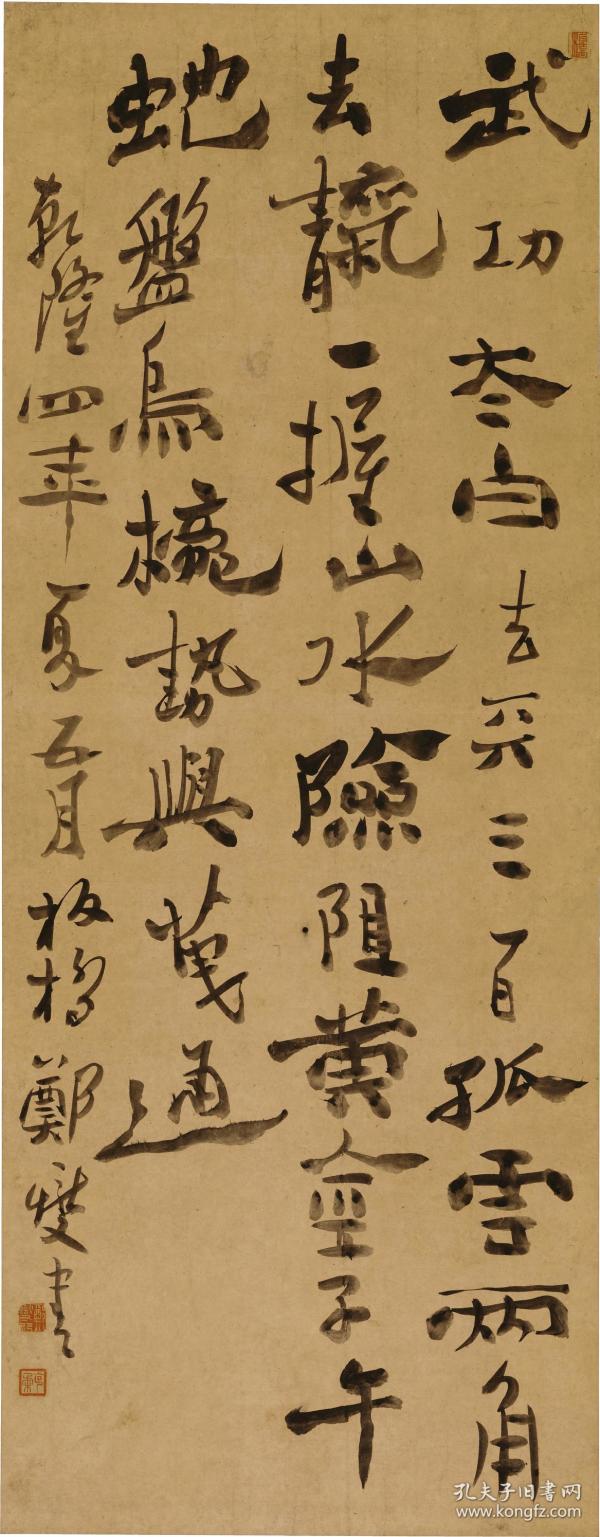 武功夳白去兲三百孤雲兩角
去靝一握山水險阻黃金子午
蛇盤烏櫳勢與通
乾隆四年夏五月板橋鄭燮書
孔夫子旧书网
www.kongfz.com